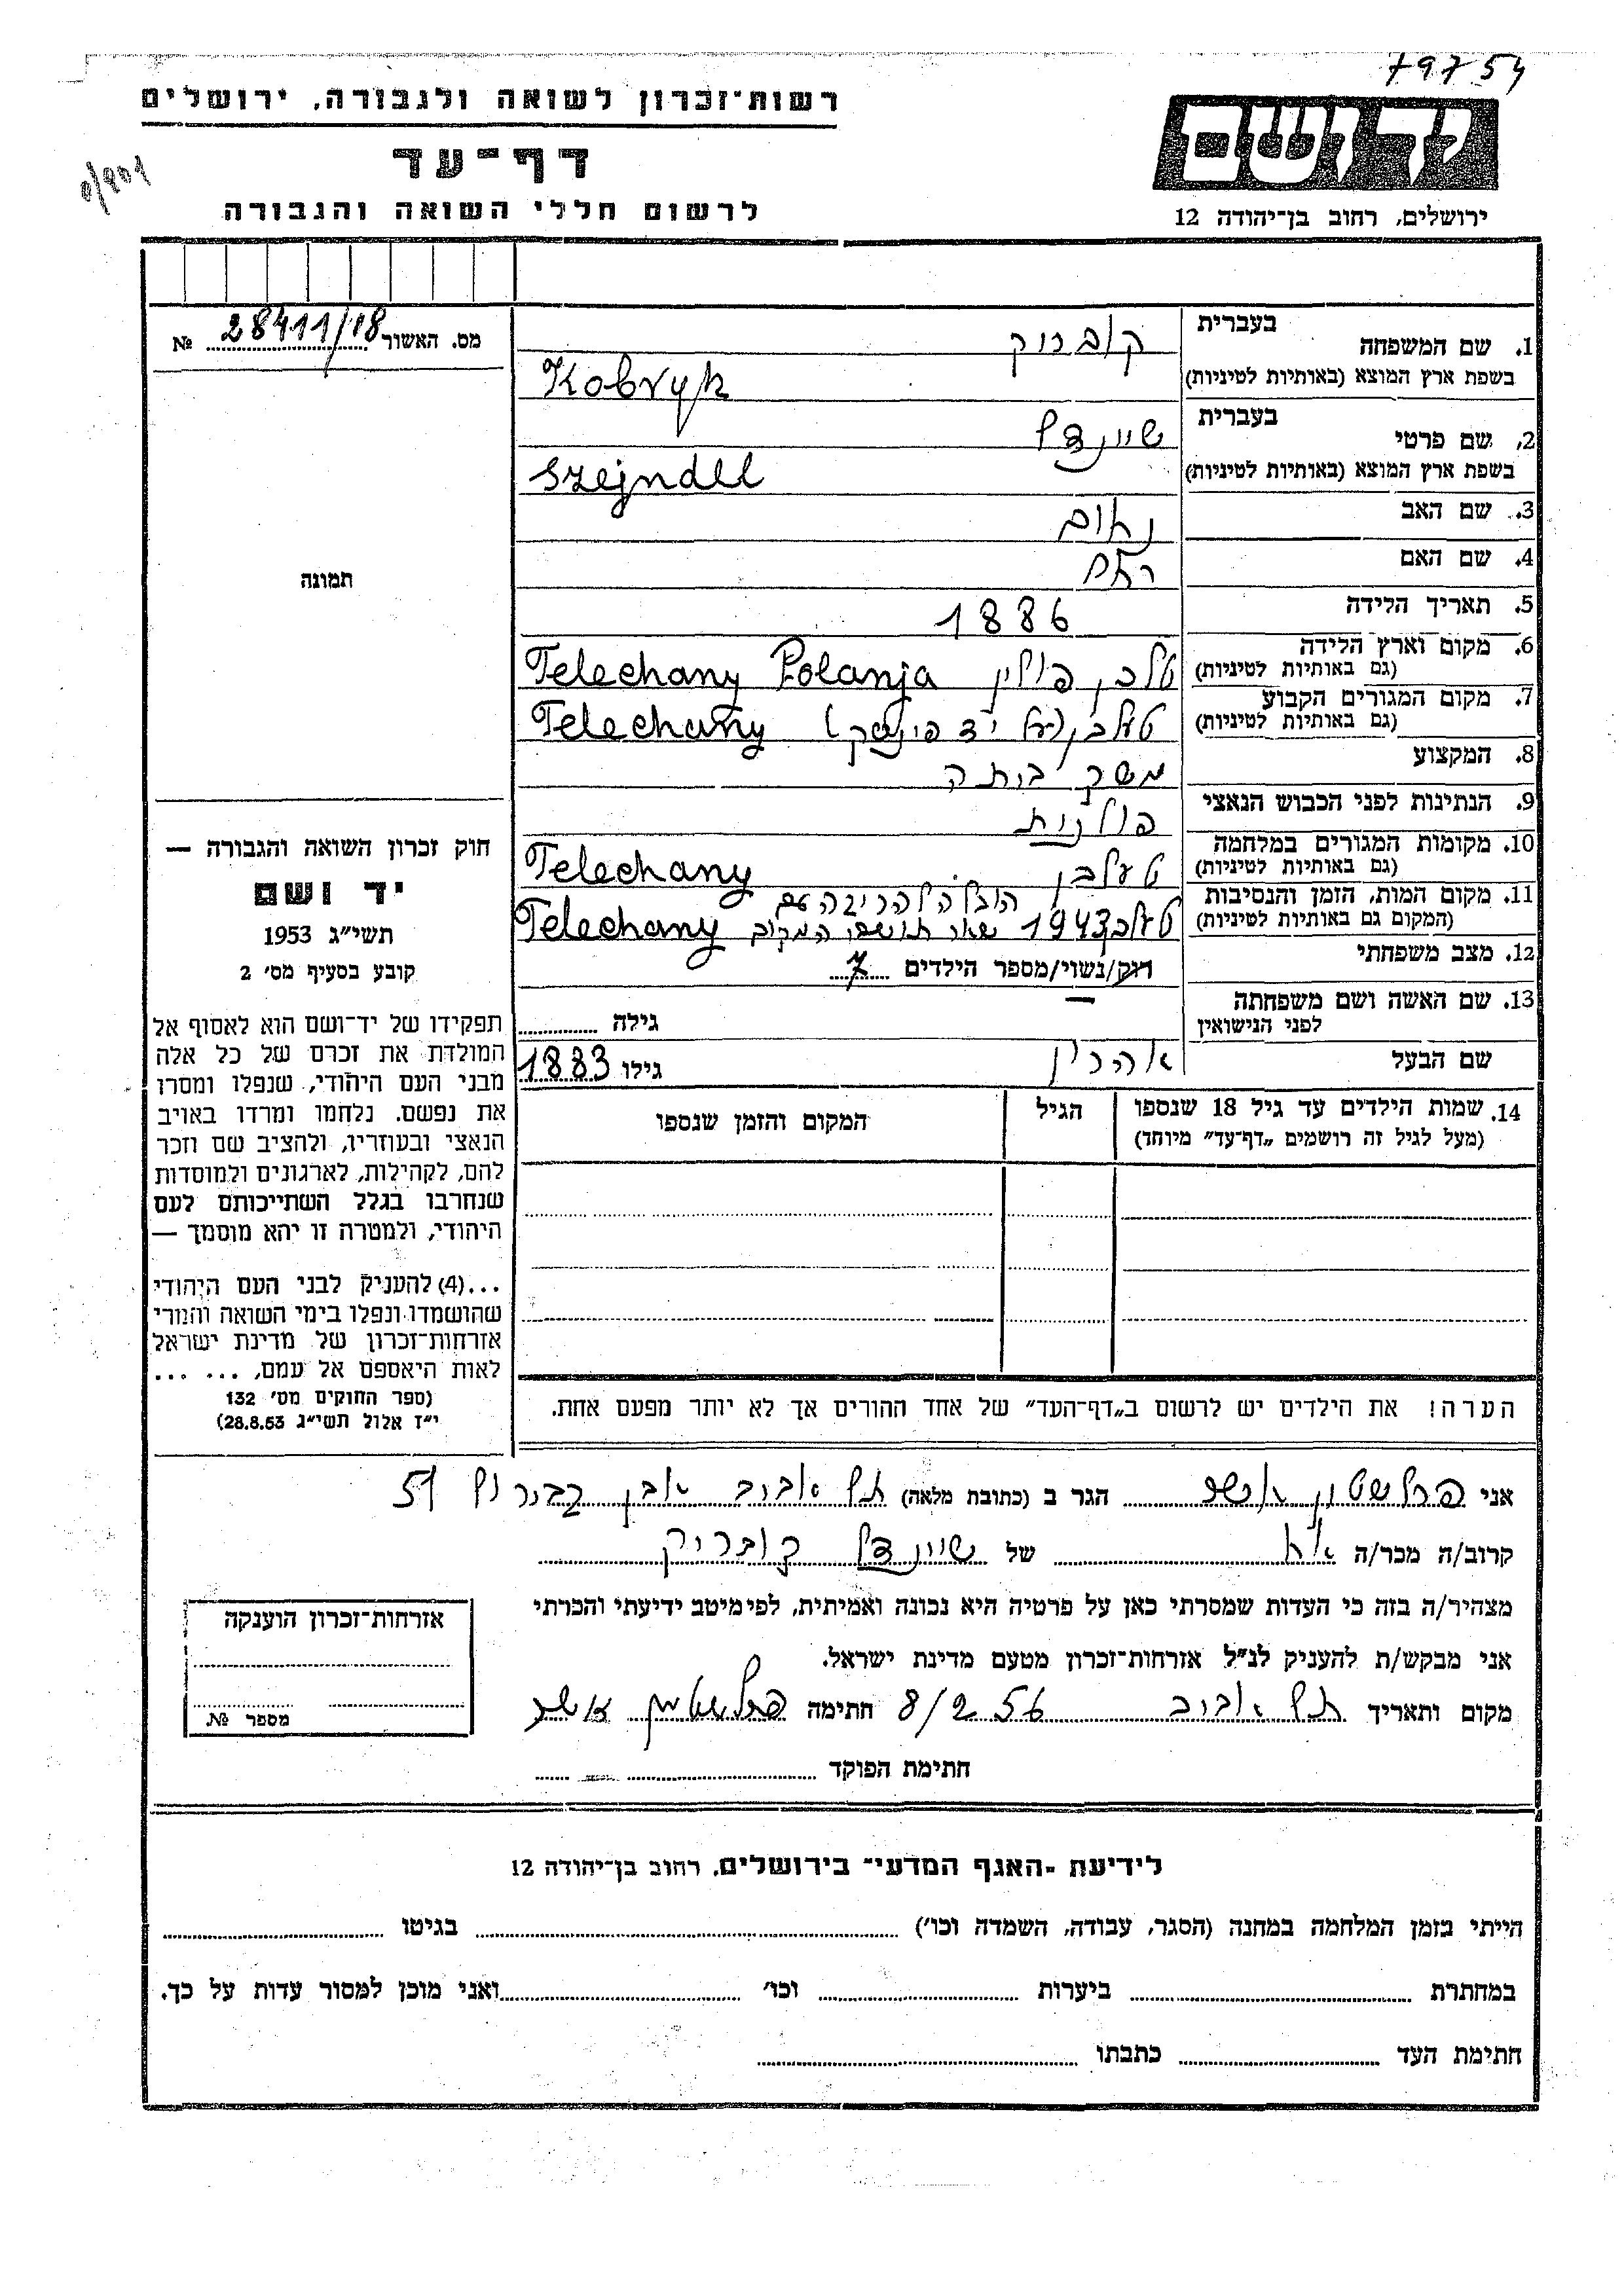 79754
רשות־זכרון לשואה ולגבורה, ירושלים
דף־עד
לרשום חללי השואה והגבורה
ידושם
ירושלים, רחוב בן־יהודה 12
מס. האשור 28411/18 №
תמונה
1. שם המשפחה בעברית קובריק
בשפת ארץ המוצא (באותיות לטיניות) Kobryk
2. שם פרטי בעברית שיינדל
בשפת ארץ המוצא (באותיות לטיניות) Szejndel
3. שם האב נחום
4. שם האם
5. תאריך הלידה 1886
6. מקום וארץ הלידה (גם באותיות לטיניות) טלכן פולין Telechany Polanja
7. מקום המגורים הקבוע (גם באותיות לטיניות) טעלכן (על יד פינסק) Telechany
8. המקצוע משק ביתה
9. הנתינות לפני הכבוש הנאצי פולנית
10. מקומות המגורים במלחמה (גם באותיות לטיניות) טעלכן Telechany
11. מקום המות, הזמן והנסיבות (המקום גם באותיות לטיניות) הובלה להריגה עם
טעלכן 1943 שאר תושבי המקום Telechany
12. מצב משפחתי רוק/נשוי/מספר הילדים 7
13. שם האשה ושם משפחתה לפני הנישואין — גילה
שם הבעל אהרון גילו 1883
14. שמות הילדים עד גיל 18 שנספו
(מעל לגיל זה רושמים „דף־עד” מיוחד)
הגיל
המקום והזמן שנספו
הערה! את הילדים יש לרשום ב„דף־העד” של אחד ההורים אך לא יותר מפעם אחת.
חוק זכרון השואה והגבורה —
יד ושם
תשי״ג 1953
קובע בסעיף מס׳ 2
תפקידו של יד־ושם הוא לאסוף אל
המולדת את זכרם של כל אלה
מבני העם היהודי, שנפלו ומסרו
את נפשם. נלחמו ומרדו באויב
הנאצי ובעוזריו, ולהציב שם וזכר
להם, לקהילות, לארגונים ולמוסדות
שנחרבו בגלל השתייכותם לעם
היהודי, ולמטרה זו יהא מוסמך —
...(4) להעניק לבני העם היהודי
שהושמדו ונפלו בימי השואה והמרי
אזרחות־זכרון של מדינת ישראל
לאות היאספם אל עמם, ... ...
(ספר החוקים מס׳ 132
י״ז אלול תשי״ג 28.8.53)
אני פרלשטין אשר הגר ב (כתובת מלאה) תל אביב אבן גבירול 51
קרוב/ה מכר/ה אח של שיינדל קובריק
מצהיר/ה בזה כי העדות שמסרתי כאן על פרטיה היא נכונה ואמיתית, לפי מיטב ידיעתי והכרתי
אני מבקש/ת להעניק לנ״ל אזרחות־זכרון מטעם מדינת ישראל.
מקום ותאריך תל אביב 8/2 56 חתימה פרלשטין אשר
חתימת הפוקד
אזרחות־זכרון הוענקה
מספר №
לידיעת ״האגף המדעי״ בירושלים, רחוב בן־יהודה 12
הייתי בזמן המלחמה במחנה (הסגר, עבודה, השמדה וכו׳) בגיטו
במחתרת ביערות וכו׳ ואני מוכן למסור עדות על כך.
חתימת העד כתבתו